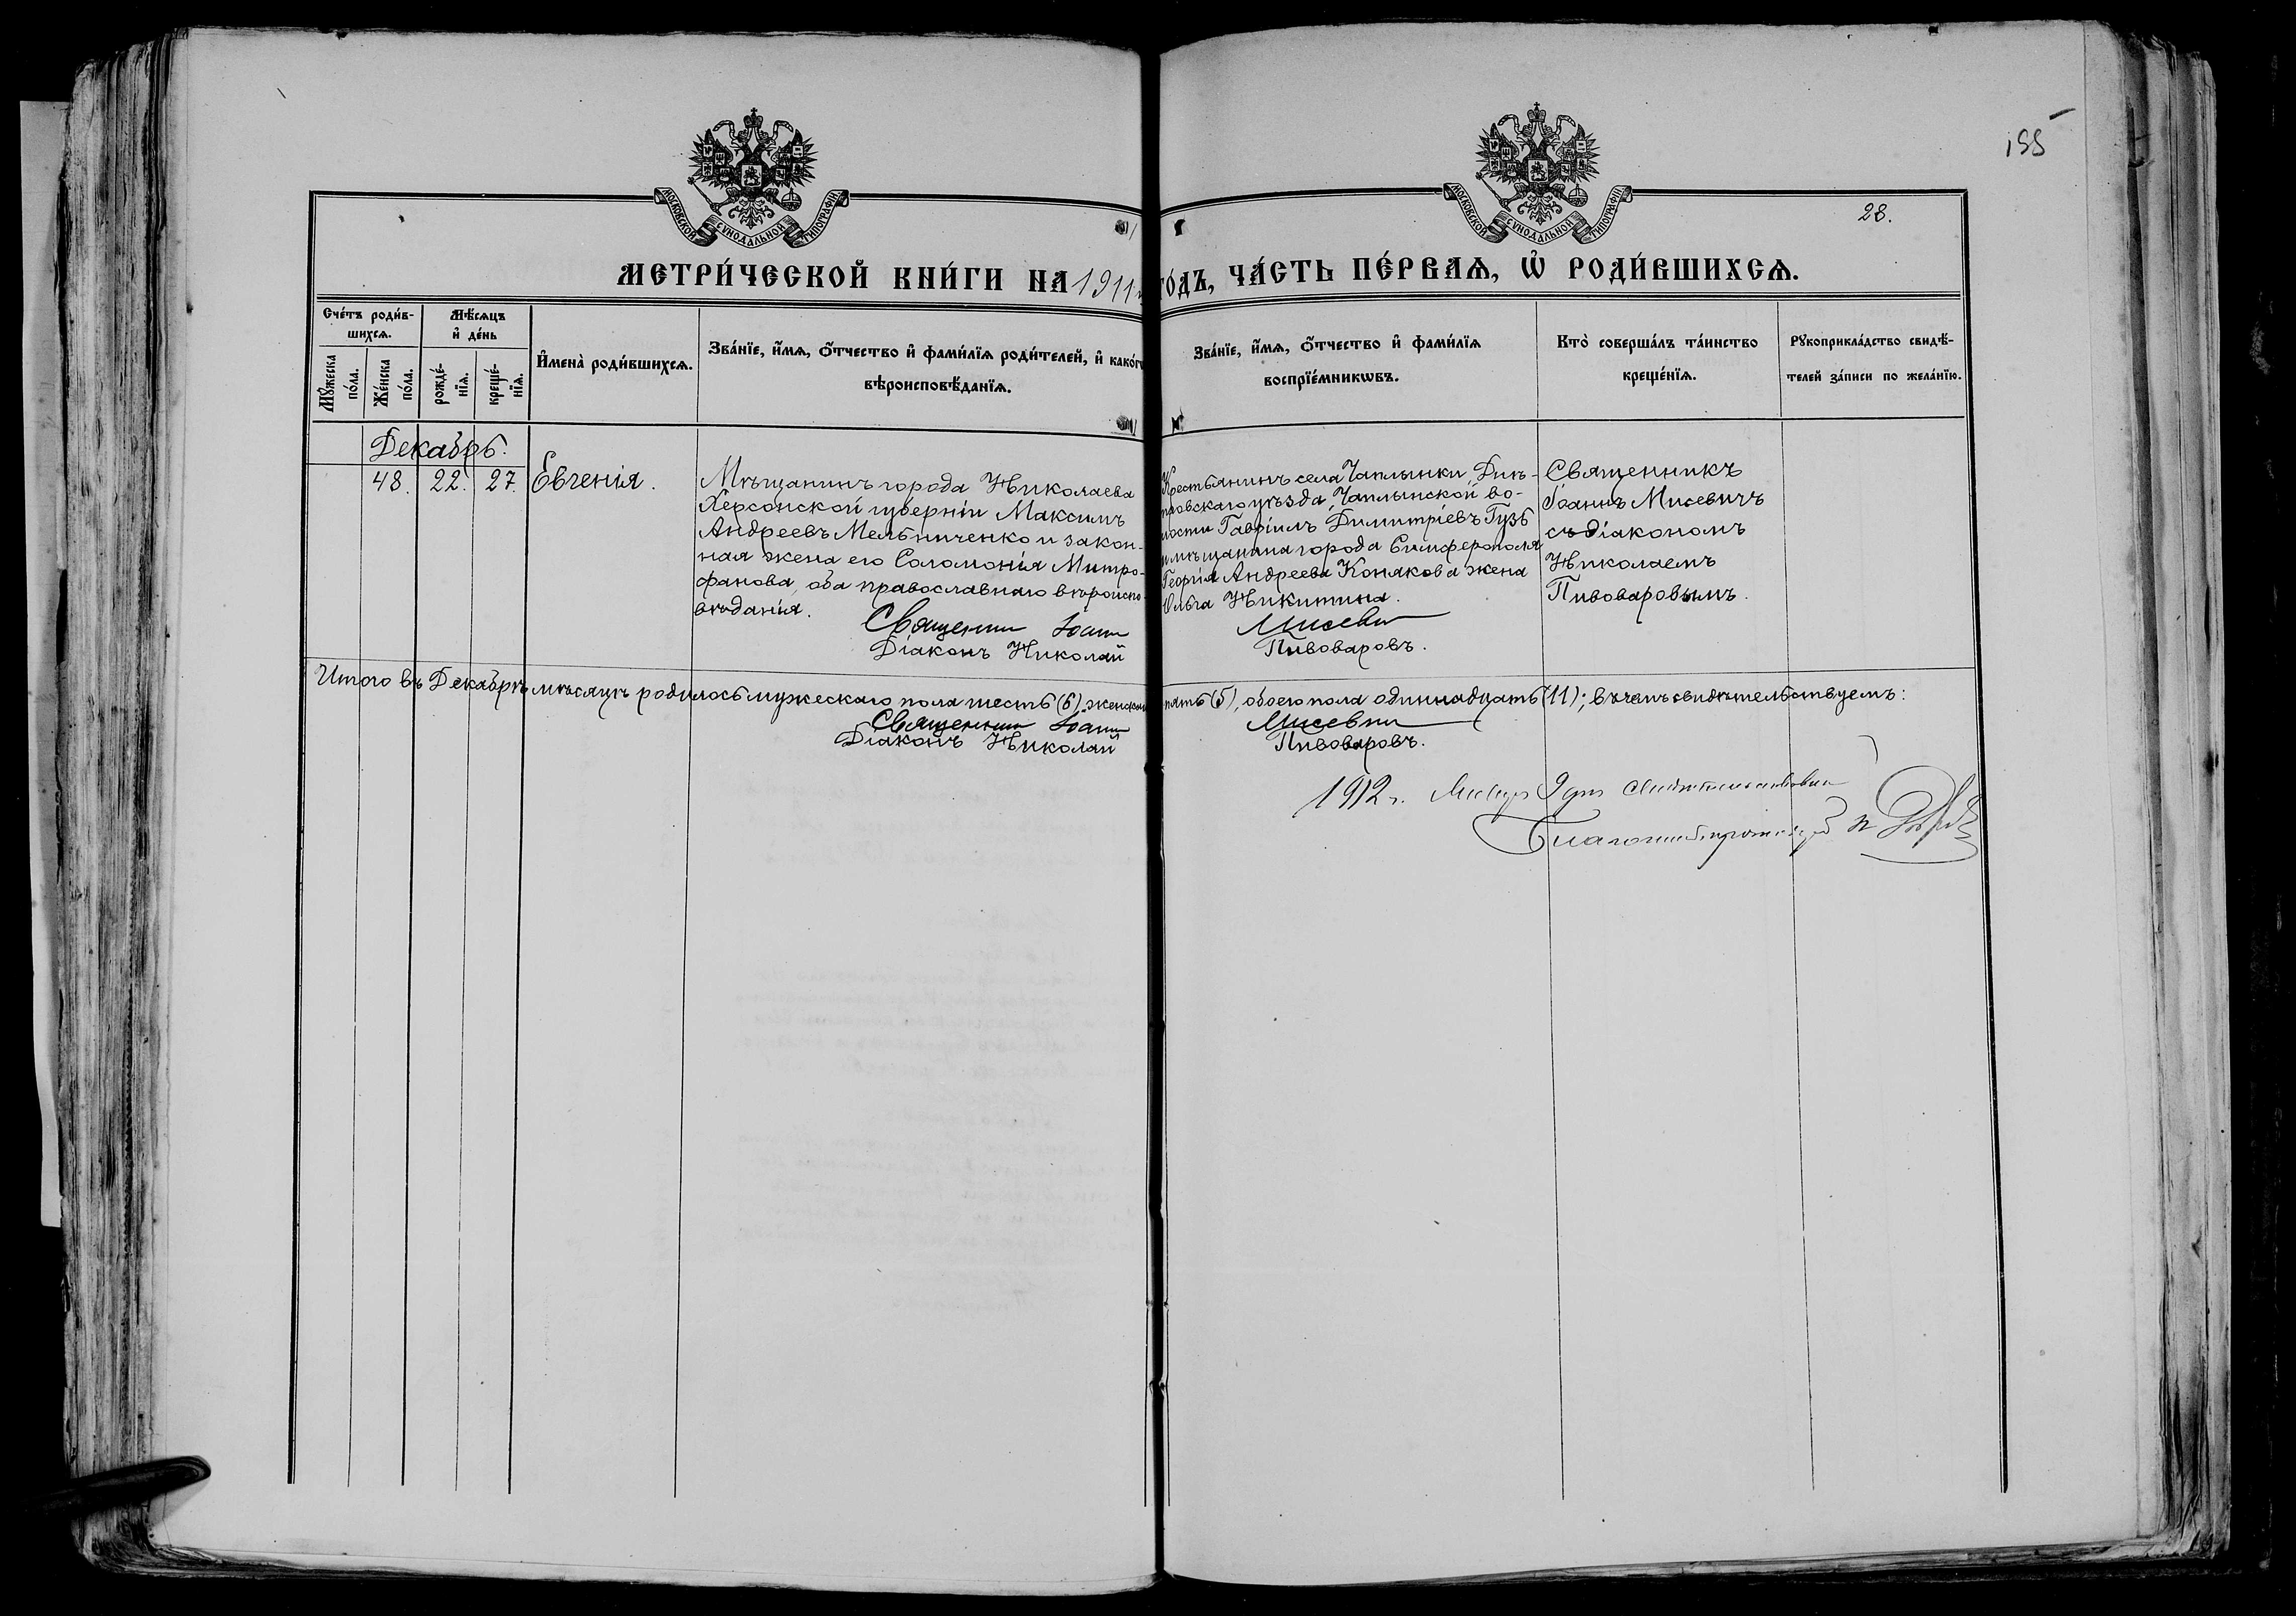 155
28.
МОСКОВСКОЙ СѴНОДАЛЬНОЙ ТИПОГРАФІИ
МОСКОВСКОЙ СѴНОДАЛЬНОЙ ТИПОГРАФІИ
МЕТРИ́ЧЕСКОЙ КНИ́ГИ НА 1911
ГО́ДЪ, ЧА́СТЬ ПЕ́РВАѦ, Ѡ҆ РОДИ́ВШИХСѦ.
Сче́тъ роди́в-
шихсѧ.
Мѣ́сѧцъ
и҆ де́нь
Мꙋ́жеска
по́ла.
Же́нска
по́ла.
рожде́-
нїѧ.
креще́-
нїѧ.
И҆мена̀ роди́вшихсѧ.
Зва́нїе, и҆́мѧ, ѻ҆́тчество и҆ фами́лїѧ роди́телей, и҆ како́гѡ
вѣроисповѣ́данїѧ.
Зва́нїе, и҆́мѧ, ѻ҆́тчество и҆ фами́лїѧ
воспрїе́мникѡвъ.
Кто̀ соверша́лъ та́инство
креще́нїѧ.
Рꙋкоприкла́дство свидѣ́-
телей за́писи по жела́нїю.
Декабрь.
48. 22. 27. Евгенія.
Мѣщанинъ города Николаева
Херсонской губерніи Максимъ
Андреевъ Мельниченко и закон-
ная жена его Соломонія Митро-
фанова, оба православнаго вѣроиспо-
вѣданія.
Священник Іоанн
Діаконъ Николай
Крестьянинъ села Чаплынки, Днѣ-
провскаго уѣзда, Чаплынской во-
лости Гавріилъ Димитріевъ Гузь
и мѣщанина города Симферополя
Георгія Андреева Конякова жена
Ольга Никитина.
Мисевич
Пивоваровъ.
Священникъ
Іоаннъ Мисевичъ
съ діакономъ
Николаемъ
Пивоваровымъ.
Итого въ Декабрѣ мѣсяцѣ родилось мужескаго пола шесть (6), женскаго
пять (5), обоего пола одиннадцать (11); въ чемъ свидѣтельствуемъ:
Священник Іоанн
Діаконъ Николай
Мисевич
Пивоваровъ.
1912 г. 9 дня